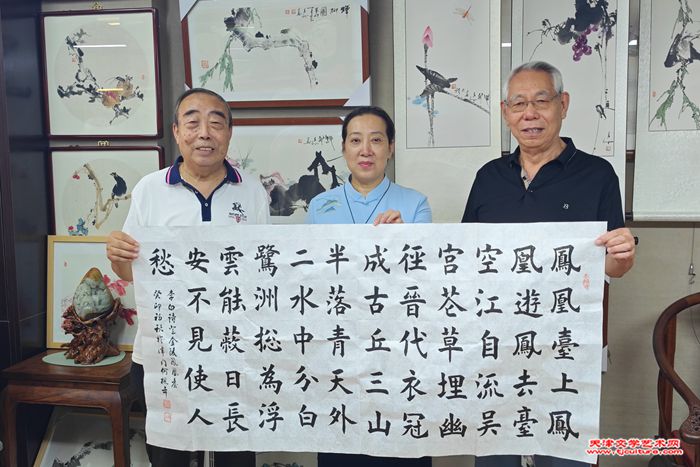 鳳凰臺上鳳
凰遊鳳去臺
空江自流吴
宮花草埋幽
徑晉代衣冠
成古丘三山
半落青天外
二水中分白
鷺洲総為浮
雲能蔽日長
安不見使人
愁
李白詩登金陵鳳凰臺
癸卯初秋於津門
天津文学艺术网
www.tjculture.com